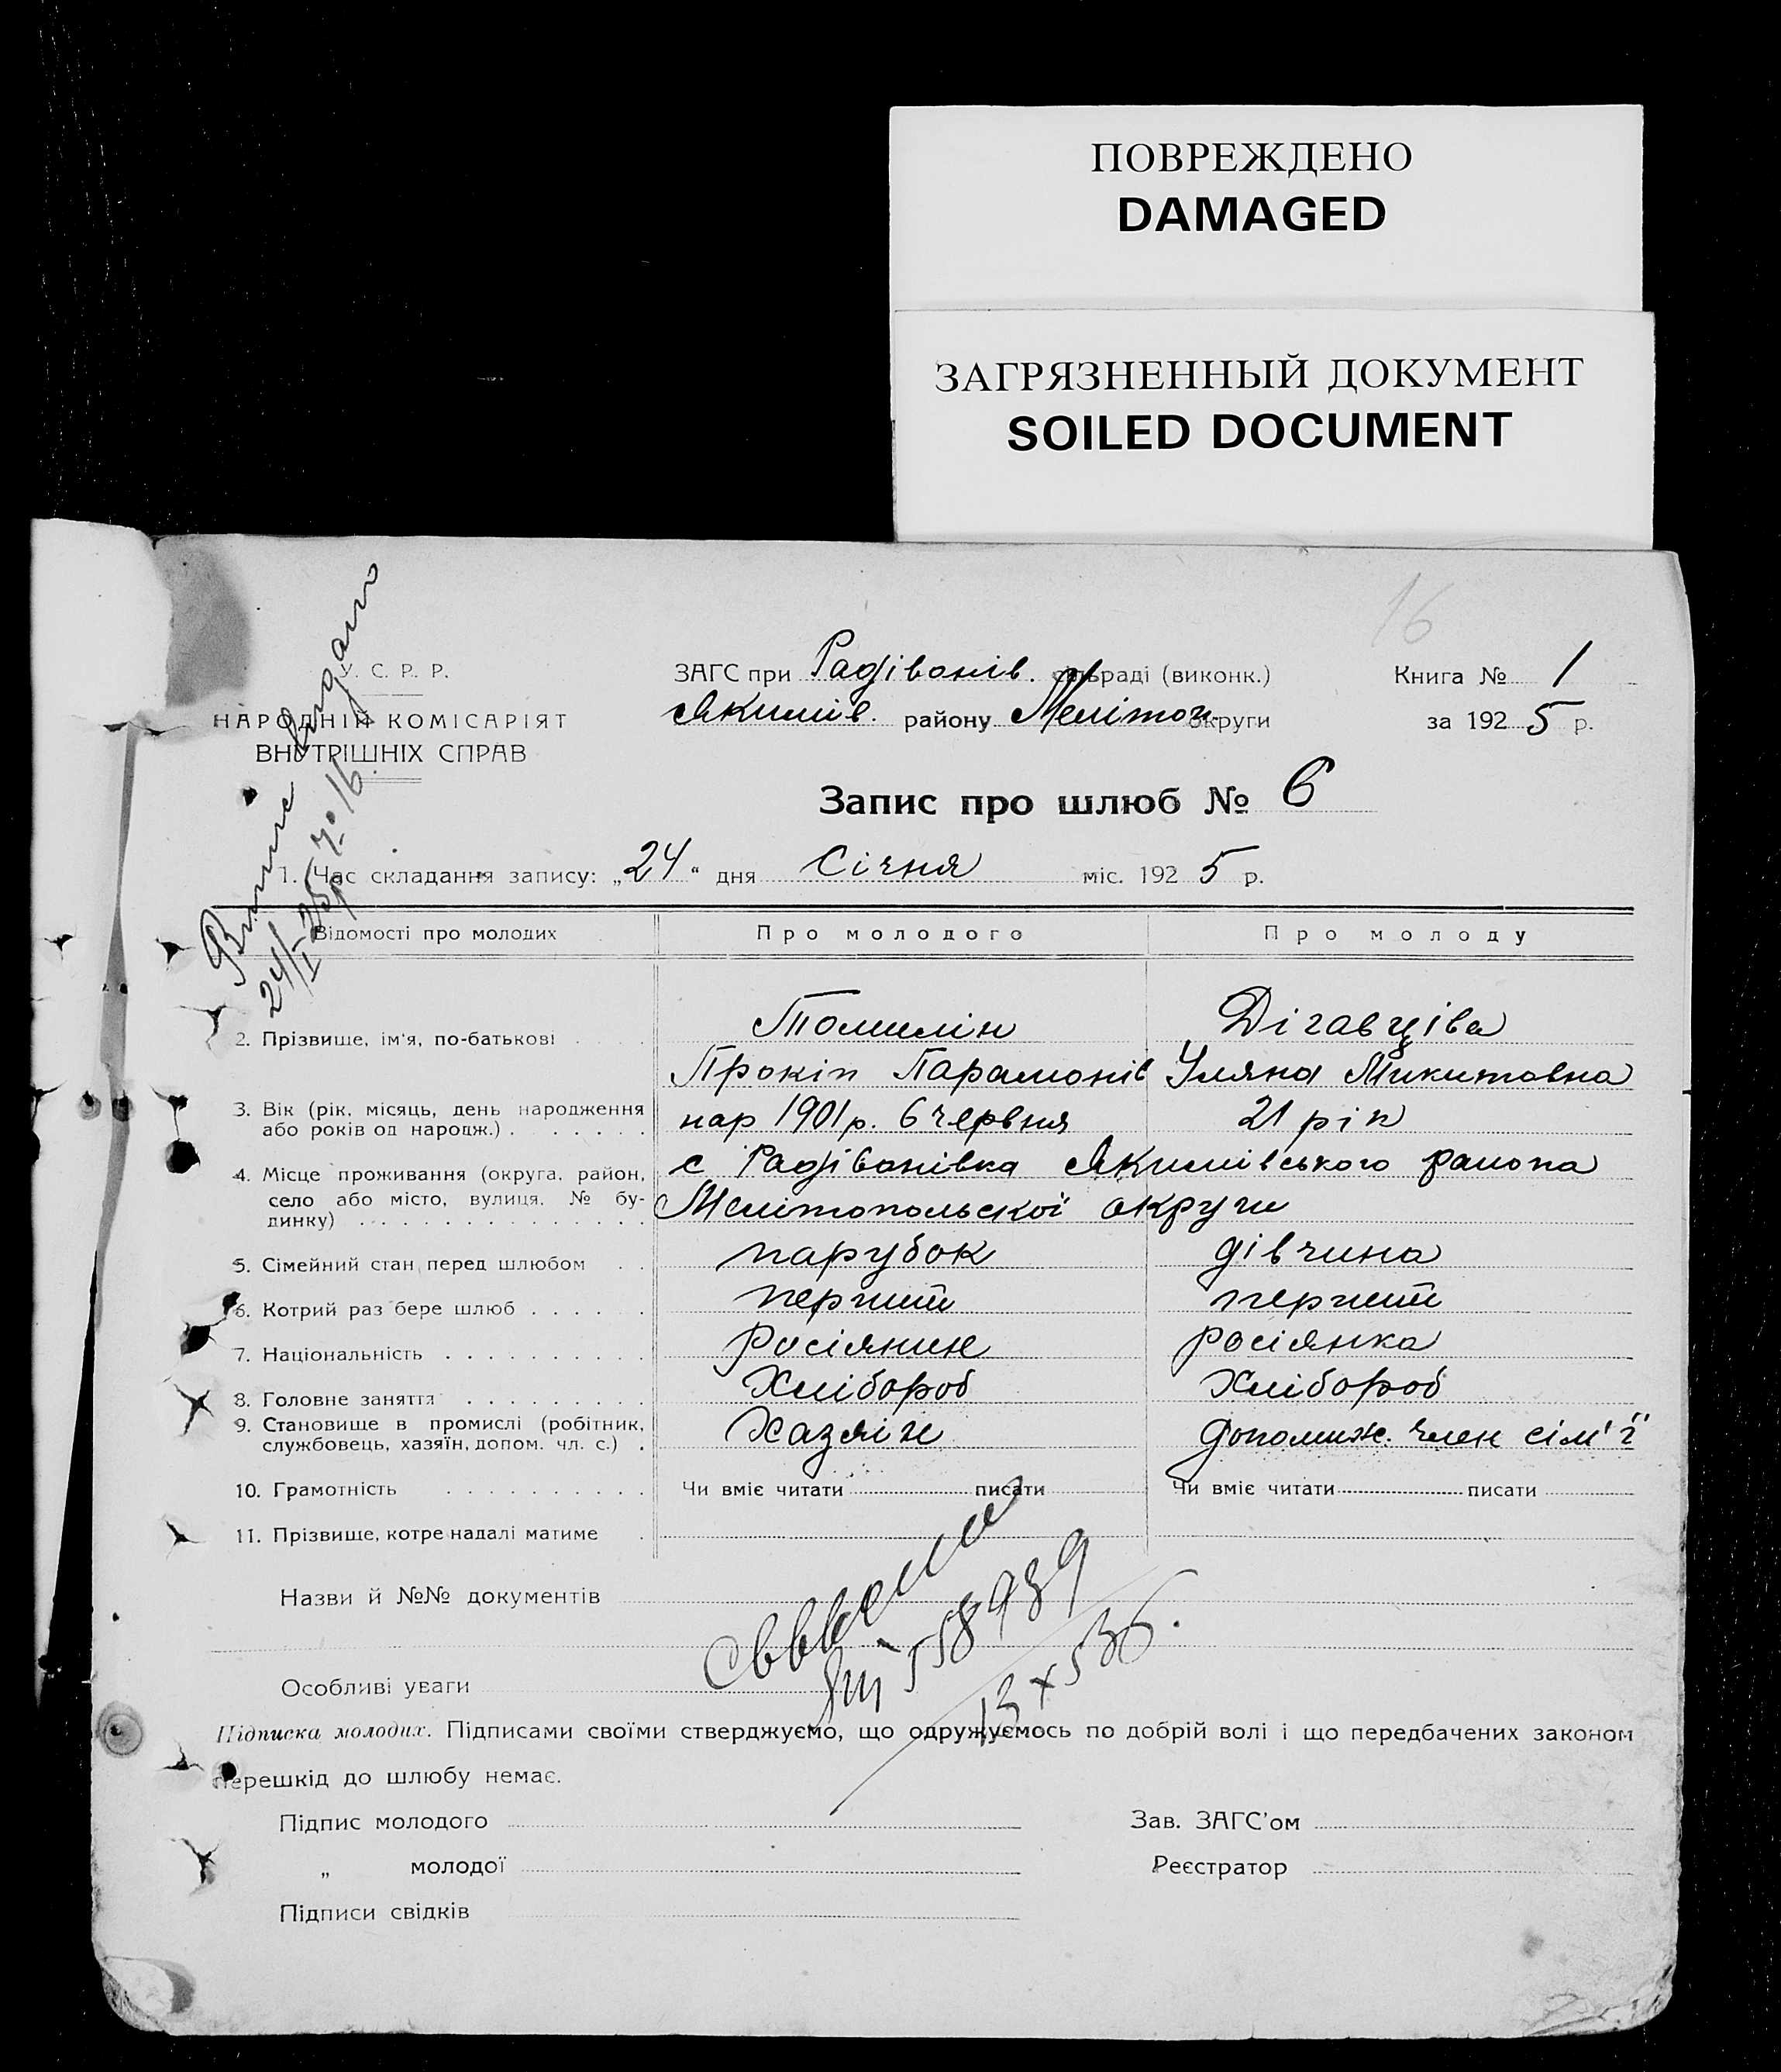 ПОВРЕЖДЕНО
DAMAGED
ЗАГРЯЗНЕННЫЙ ДОКУМЕНТ
SOILED DOCUMENT
16
У. С. Р. Р.
НАРОДНІЙ КОМІСАРІЯТ
ВНУТРІШНІХ СПРАВ
ЗАГС при Радівонів. сільраді (виконк.)
Якимів. району Мелітоп. округи
Книга № 1
за 1925 р.
Запис про шлюб № 6
1. Час складання запису: „24“ дня Січня міс. 1925 р.
Відомості про молодих Про молодого Про молоду
2. Прізвище, ім'я, по-батькові Томилін Дігавціва
Прокіп Парамонів Уляна Микитовна
3. Вік (рік, місяць, день народження нар 1901 р. 6 червня 21 рік
або років од народж.)
4. Місце проживання (округа, район, с Радівонівка Якимівського района
село або місто, вулиця, № бу- Мелітопольскої округи
динку)
5. Сімейний стан перед шлюбом парубок дівчина
6. Котрий раз бере шлюб перший перший
7. Національність росіянин росіянка
8. Головне заняття Хлібороб Хлібороб
9. Становище в промислі (робітник, Хазяін допоміж. член сім'ї
службовець, хазяїн, допом. чл. с.)
10. Грамотність Чи вміє читати писати Чи вміє читати писати
11. Прізвище, котре надалі матиме
Назви й №№ документів
Особливі уваги
558939
Підписка молодих. Підписами своїми стверджуємо, що одружуємось по добрій волі і що передбачених законом
перешкід до шлюбу немає.
Підпис молодого Зав. ЗАГС'ом
„ молодої Реєстратор
Підписи свідків